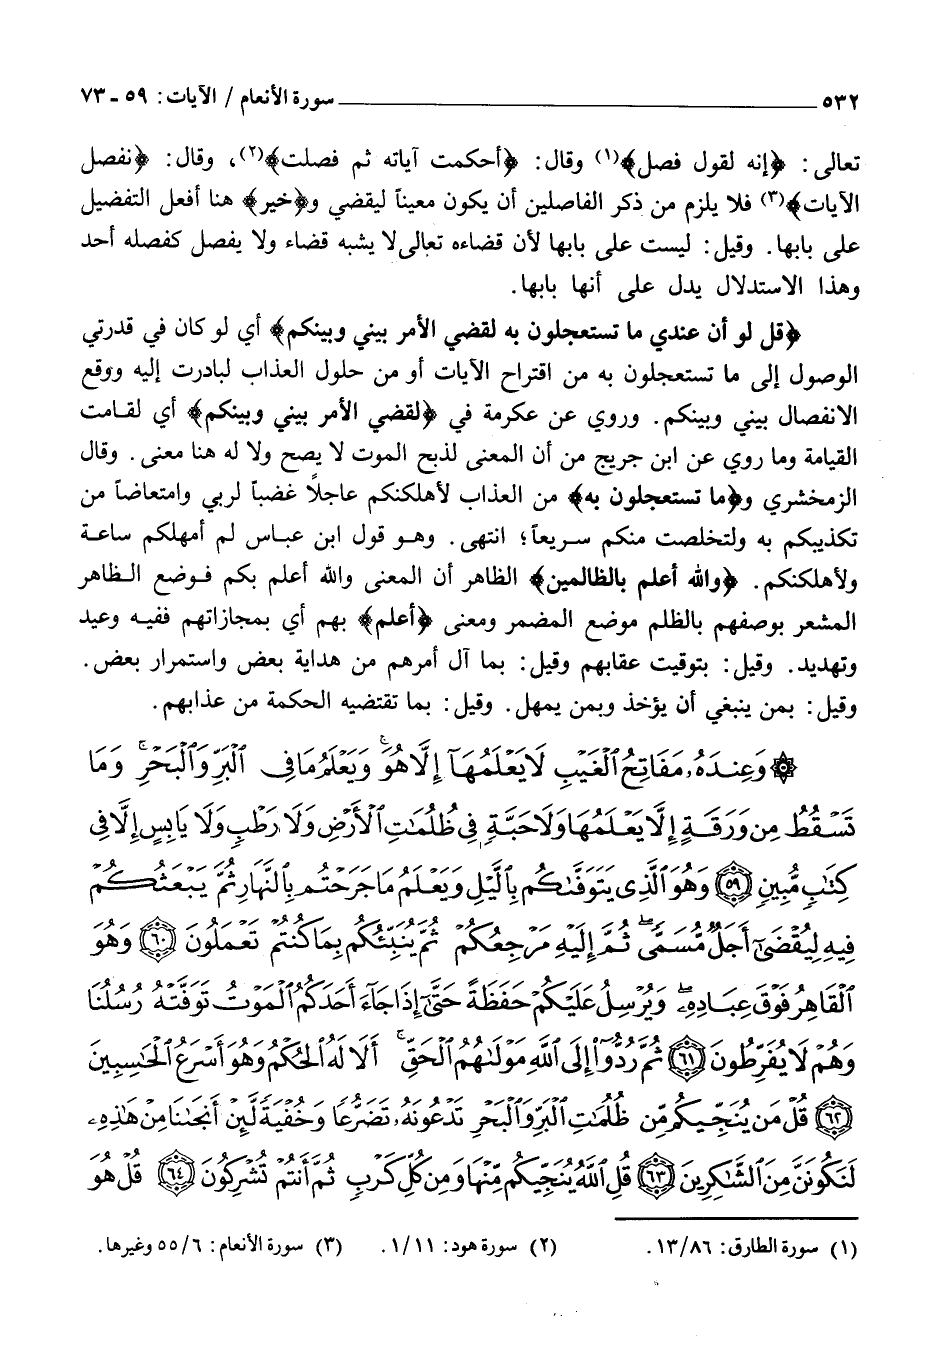 ٥٣٢ سورة الأنعام / الآيات: ٥٩ - ٧٣
تعالى: ﴿إنه لقول فصل﴾(١) وقال: ﴿أحكمت آياته ثم فصلت﴾(٢)، وقال: ﴿نفصل
الآيات﴾(٣) فلا يلزم من ذكر الفاصلين أن يكون معيناً ليقضي و﴿خير﴾ هنا أفعل التفضيل
على بابها. وقيل: ليست على بابها لأن قضاءه تعالى لا يشبه قضاء ولا يفصل كفصله أحد
وهذا الاستدلال يدل على أنها بابها.
﴿قل لو أن عندي ما تستعجلون به لقضي الأمر بيني وبينكم﴾ أي لو كان في قدرتي
الوصول إلى ما تستعجلون به من اقتراح الآيات أو من حلول العذاب لبادرت إليه ووقع
الانفصال بيني وبينكم. وروي عن عكرمة في ﴿لقضي الأمر بيني وبينكم﴾ أي لقامت
القيامة وما روي عن ابن جريج من أن المعنى لذبح الموت لا يصح ولا له هنا معنى. وقال
الزمخشري و﴿ما تستعجلون به﴾ من العذاب لأهلكنكم عاجلاً غضباً لربي وامتعاضاً من
تكذيبكم به ولتخلصت منكم سريعاً؛ انتهى. وهو قول ابن عباس لم أمهلكم ساعة
ولأهلكنكم. ﴿والله أعلم بالظالمين﴾ الظاهر أن المعنى والله أعلم بكم فوضع الظاهر
المشعر بوصفهم بالظلم موضع المضمر ومعنى ﴿أعلم﴾ بهم أي بمجازاتهم ففيه وعيد
وتهديد. وقيل: بتوقيت عقابهم وقيل: بما آل أمرهم من هداية بعض واستمرار بعض.
وقيل: بمن ينبغي أن يؤخذ وبمن يمهل. وقيل: بما تقتضيه الحكمة من عذابهم.
۞ وَعِندَهُۥ مَفَاتِحُ ٱلْغَيْبِ لَا يَعْلَمُهَآ إِلَّا هُوَ ۚ وَيَعْلَمُ مَا فِى ٱلْبَرِّ وَٱلْبَحْرِ ۚ وَمَا
تَسْقُطُ مِن وَرَقَةٍ إِلَّا يَعْلَمُهَا وَلَا حَبَّةٍ فِى ظُلُمَٰتِ ٱلْأَرْضِ وَلَا رَطْبٍ وَلَا يَابِسٍ إِلَّا فِى
كِتَٰبٍ مُّبِينٍ ٥٩ وَهُوَ ٱلَّذِى يَتَوَفَّىٰكُم بِٱلَّيْلِ وَيَعْلَمُ مَا جَرَحْتُم بِٱلنَّهَارِ ثُمَّ يَبْعَثُكُمْ
فِيهِ لِيُقْضَىٰٓ أَجَلٌ مُّسَمًّى ۖ ثُمَّ إِلَيْهِ مَرْجِعُكُمْ ثُمَّ يُنَبِّئُكُم بِمَا كُنتُمْ تَعْمَلُونَ ٦٠ وَهُوَ
ٱلْقَاهِرُ فَوْقَ عِبَادِهِۦ ۖ وَيُرْسِلُ عَلَيْكُمْ حَفَظَةً حَتَّىٰٓ إِذَا جَآءَ أَحَدَكُمُ ٱلْمَوْتُ تَوَفَّتْهُ رُسُلُنَا
وَهُمْ لَا يُفَرِّطُونَ ٦١ ثُمَّ رُدُّوٓا۟ إِلَى ٱللَّهِ مَوْلَىٰهُمُ ٱلْحَقِّ ۚ أَلَا لَهُ ٱلْحُكْمُ وَهُوَ أَسْرَعُ ٱلْحَٰسِبِينَ
٦٢ قُلْ مَن يُنَجِّيكُم مِّن ظُلُمَٰتِ ٱلْبَرِّ وَٱلْبَحْرِ تَدْعُونَهُۥ تَضَرُّعًا وَخُفْيَةً لَّئِنْ أَنجَىٰنَا مِنْ هَٰذِهِۦ
لَنَكُونَنَّ مِنَ ٱلشَّٰكِرِينَ ٦٣ قُلِ ٱللَّهُ يُنَجِّيكُم مِّنْهَا وَمِن كُلِّ كَرْبٍ ثُمَّ أَنتُمْ تُشْرِكُونَ ٦٤ قُلْ هُوَ
(١) سورة الطارق: ١٣/٨٦. (٢) سورة هود: ١/١١. (٣) سورة الأنعام: ٥٥/٦ وغيرها.